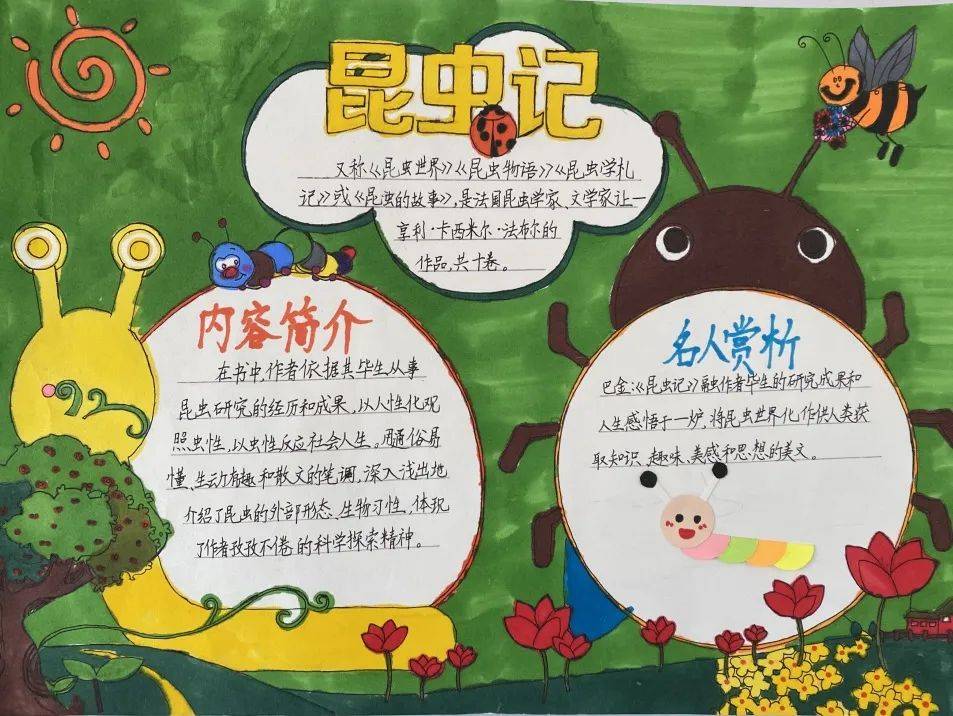 昆虫记
又称《昆虫世界》《昆虫物语》《昆虫学札
记》或《昆虫的故事》,是法国昆虫学家、文学家让一
享利·卡西米尔·法布尔的
作品,共十卷。
内容简介
在书中,作者依据其毕生从事
昆虫研究的经历和成果,以人性化观
照虫性,以虫性反应社会人生。用通俗易
懂、生动有趣和散文的笔调,深入浅出地
介绍了昆虫的外部形态、生物习性,体现
了作者孜孜不倦的科学探索精神。
名人赏析
巴金:《昆虫记》融作者毕生的研究成果和
人生感悟于一炉,将昆虫世界化作供人类获
取知识、趣味、美感和思想的美文。